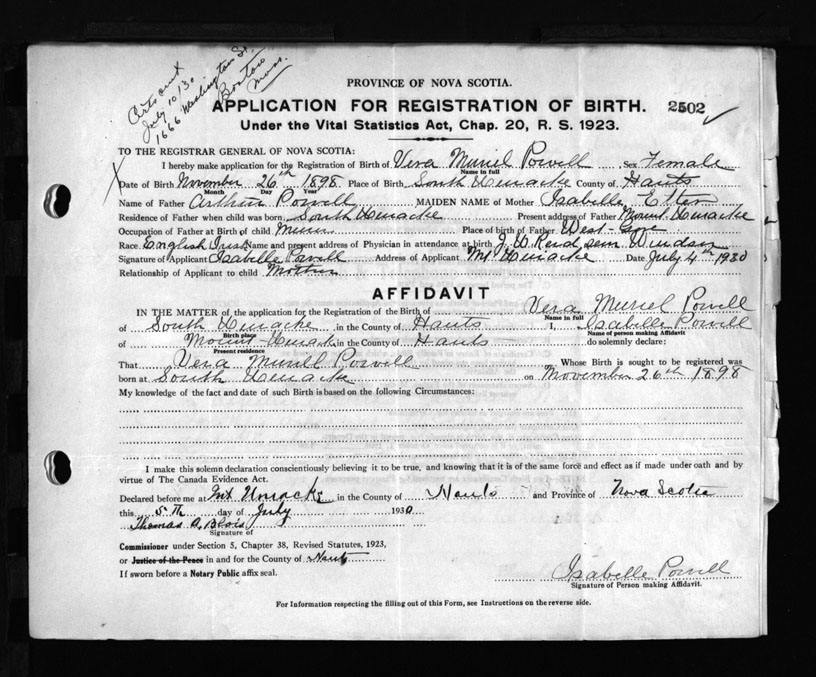 July 10/30
1666 Washington St.
Boston
Mass.
PROVINCE OF NOVA SCOTIA.
APPLICATION FOR REGISTRATION OF BIRTH. 2502
Under the Vital Statistics Act, Chap. 20, R. S. 1923.
TO THE REGISTRAR GENERAL OF NOVA SCOTIA:
I hereby make application for the Registration of Birth of Vera Muriel Powell Sex Female
Name in full
Date of Birth November 26th 1898 Place of Birth South Uniacke County of Hants
Month Day Year
Name of Father Arthur Powell MAIDEN NAME of Mother Isabelle Etter
Residence of Father when child was born South Uniacke Present address of Father Mount Uniacke
Occupation of Father at Birth of child Miner Place of birth of Father West-Gore
Race English Irish Name and present address of Physician in attendance at birth J. W. Reid, sen Windsor
Signature of Applicant Isabelle Powell Address of Applicant Mt Uniacke Date July 4th 1930
Relationship of Applicant to child Mother
AFFIDAVIT
IN THE MATTER of the application for the Registration of the Birth of Vera Muriel Powell
Name in full
of South Uniacke in the County of Hants I, Isabelle Powell
Birth place Name of person making Affidavit
of Mount Uniacke in the County of Hants do solemnly declare:
Present residence
That Vera Muriel Powell Whose Birth is sought to be registered was
born at South Uniacke on November 26th 1898
My knowledge of the fact and date of such Birth is based on the following Circumstances:
I make this solemn declaration conscientiously believing it to be true, and knowing that it is of the same force and effect as if made under oath and by
virtue of The Canada Evidence Act.
Declared before me at Mt Uniacke in the County of Hants and Province of Nova Scotia
this 5th day of July 1930
Thomas A. Blois
Signature of
Commissioner under Section 5, Chapter 38, Revised Statutes, 1923,
or Justice of the Peace in and for the County of Hants
If sworn before a Notary Public affix seal.
Isabelle Powell
Signature of Person making Affidavit.
For Information respecting the filling out of this Form, see Instructions on the reverse side.